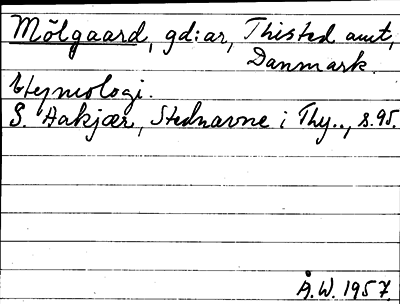 Mölgaard, gd:ar, Thisted amt,
Danmark.
Etymologi.
S. Aakjær, Stednavne i Thy.., s.95.
Å.W. 1957.